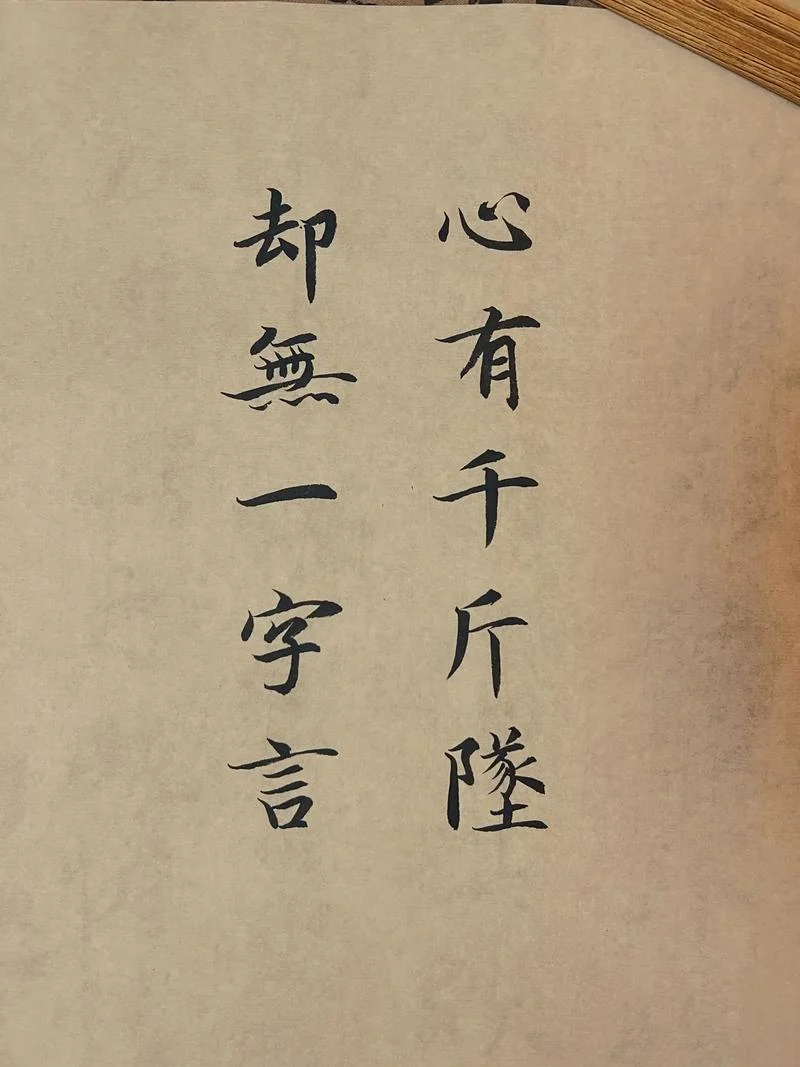 心有千斤墜
却無一字言